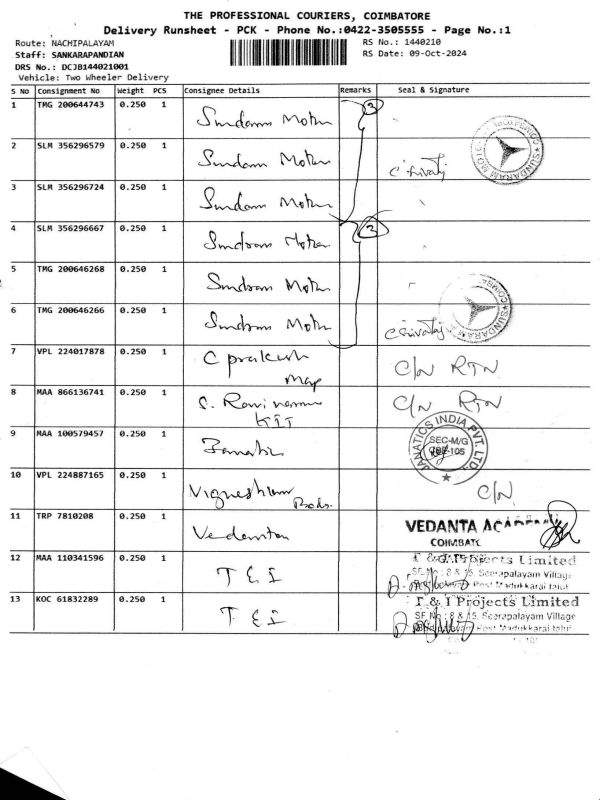 THE PROFESSIONAL COURIERS, COIMBATORE
Delivery Runsheet - PCK - Phone No.:0422-3505555 - Page No.:1
Route: NACHIPALAYAM
RS No.: 1440210
Staff: SANKARAPANDIAN
RS Date: 09-Oct-2024
DRS No.: DCJB144021001
Vehicle: Two Wheeler Delivery
S No Consignment No Weight PCS Consignee Details Remarks Seal & Signature
1 TMG 200644743 0.250 1 Sundaram Motor 3
2 SLM 356296579 0.250 1 Sundaram Motor
3 SLM 356296724 0.250 1 Sundaram Motor
4 SLM 356296667 0.250 1 Sundram Motor 3
5 TMG 200646268 0.250 1 Sundram Motor
6 TMG 200646266 0.250 1 Sundram Motor
7 VPL 224017878 0.250 1 C prakash C/N RTN
8 MAA 866136741 0.250 1 C/N RTN
KIT
9 MAA 100579457 0.250 1 JANATICS INDIA PVT. LTD.
SEC-M/G
CBE-105
10 VPL 224887165 0.250 1 C/N
11 TRP 7810208 0.250 1 Vedanta VEDANTA ACADEMY
COIMBATO
12 MAA 110341596 0.250 1 T & I Projects Limited
SF No : 8 & 15, Seerapalayam Village
Post Madukkarai taluk
13 KOC 61832289 0.250 1 T & I T & I Projects Limited
SF No : 8 & 15, Seerapalayam Village
Post Madukkarai taluk